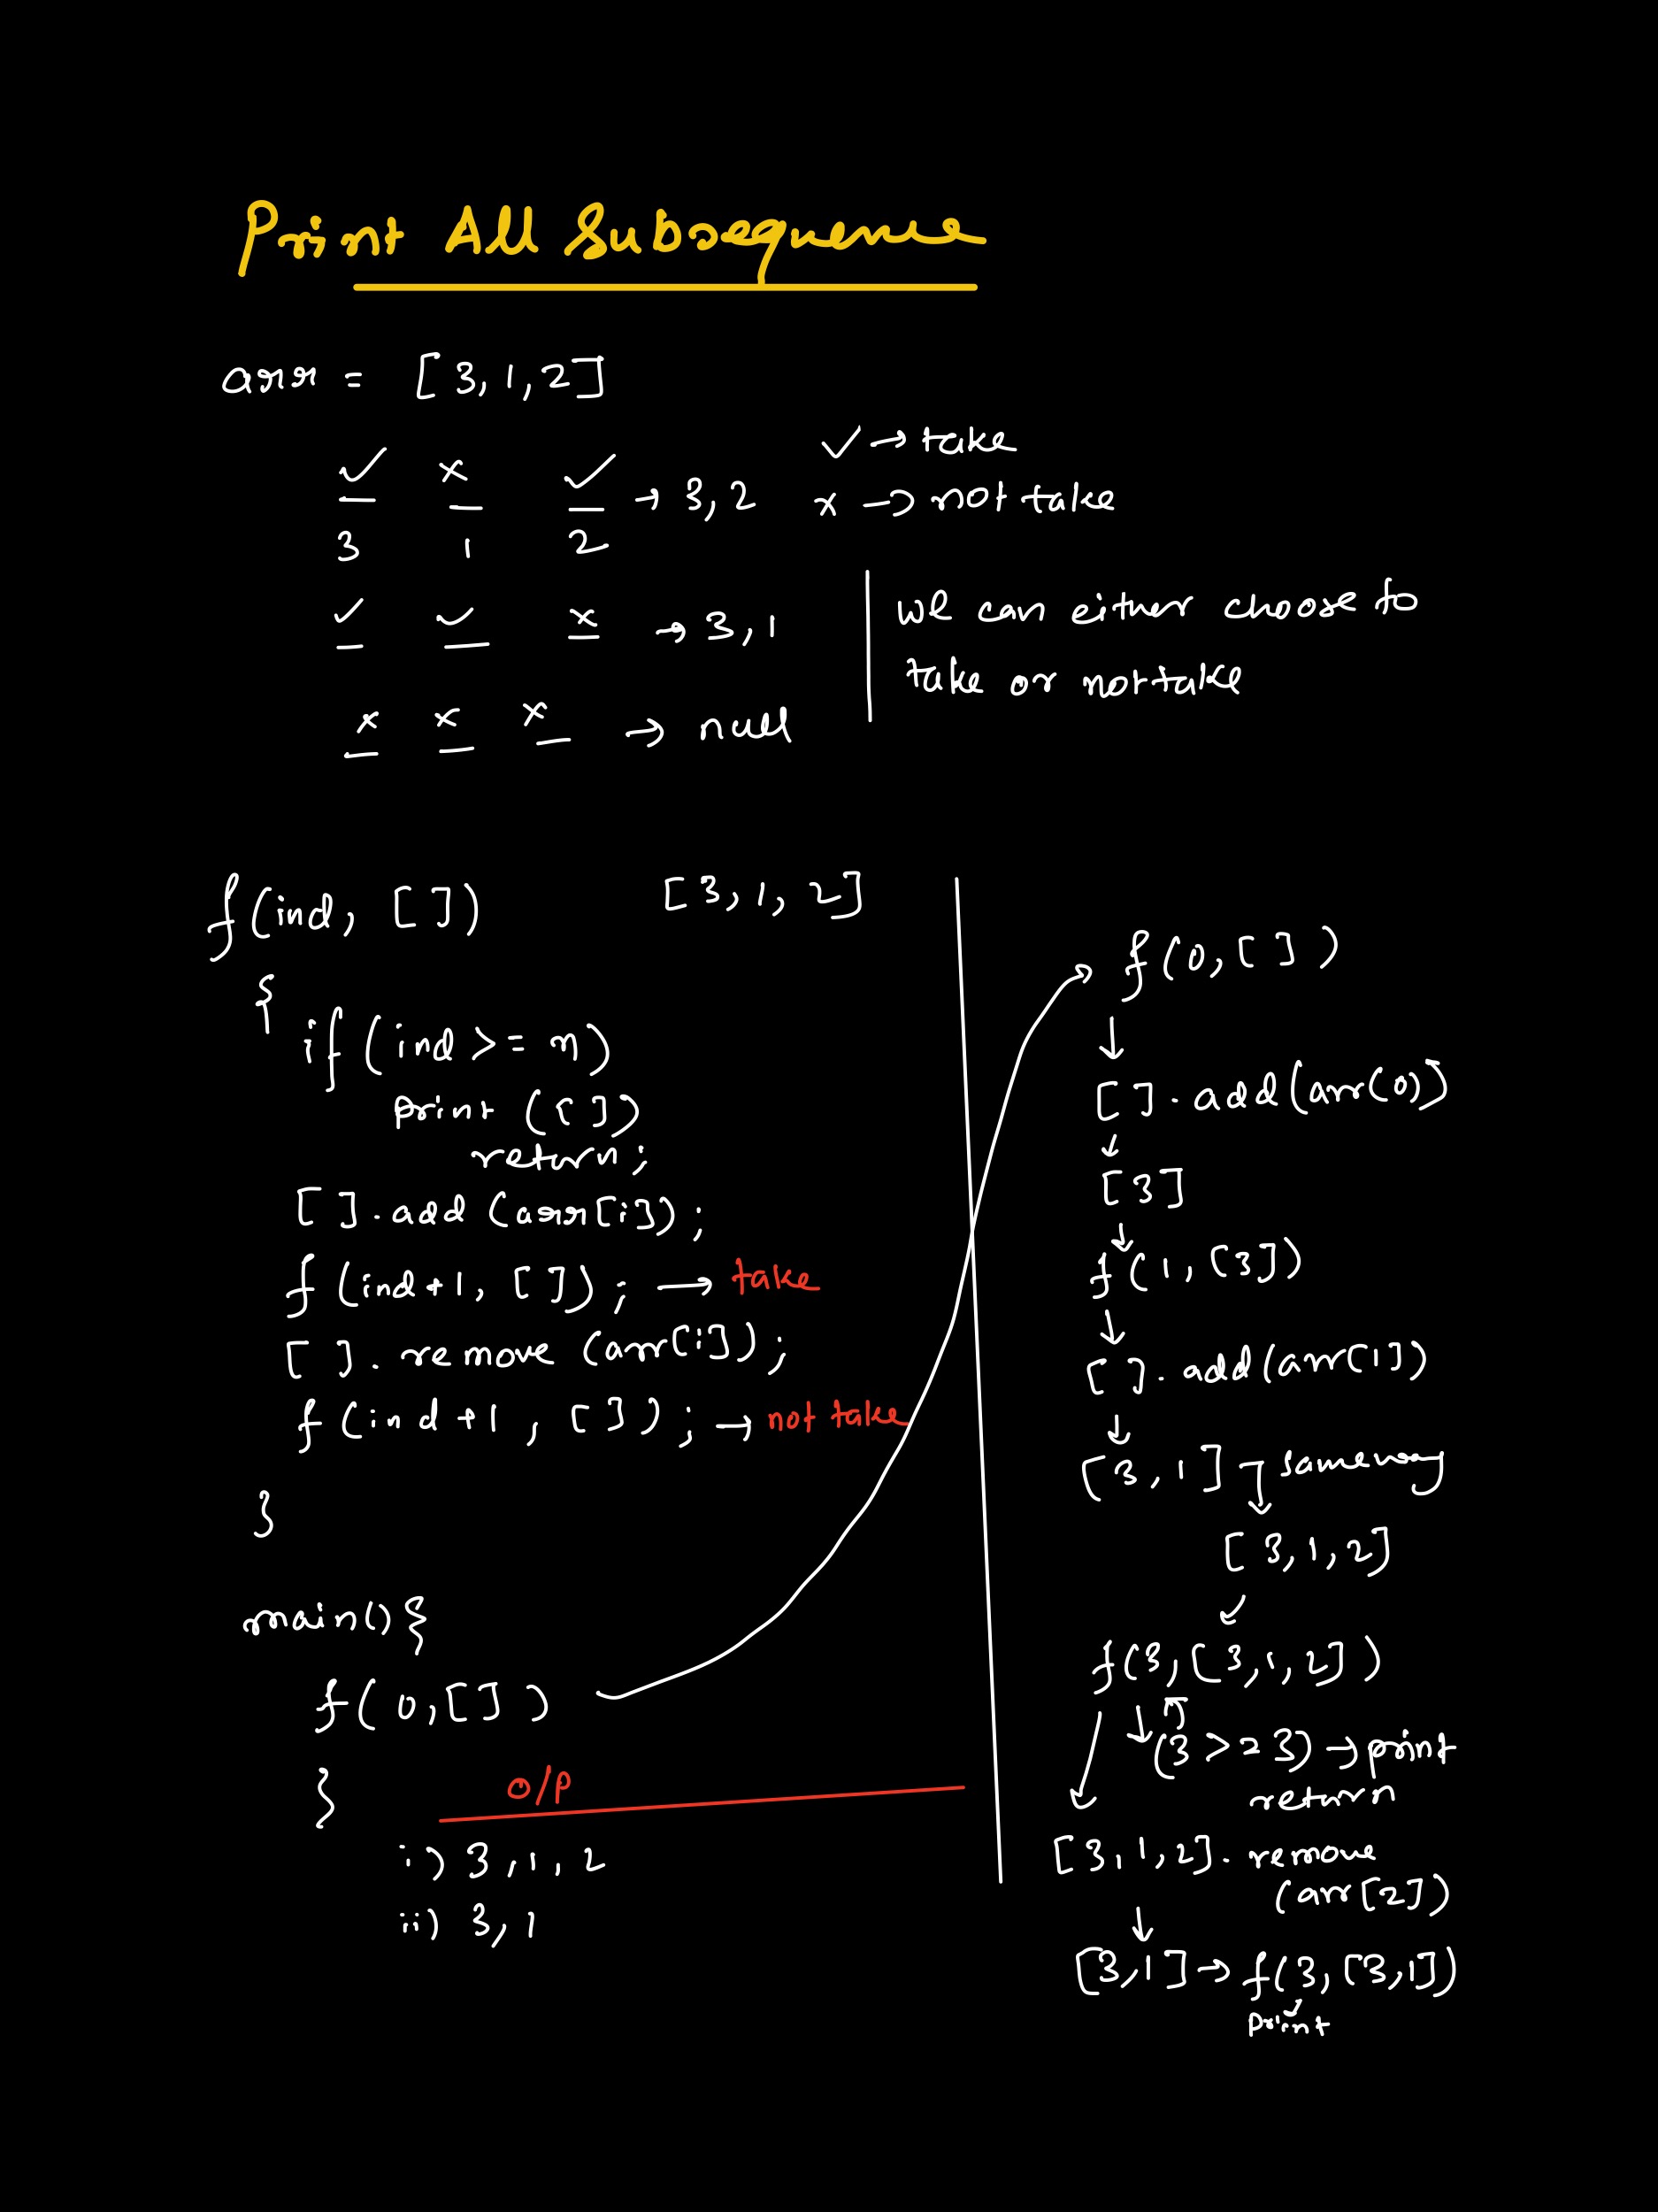 Print All Subsequence
arr = [3,1,2]
✓ x ✓ → 3,2
3 1 2
✓ → take
x → not take
✓ ✓ x → 3,1
x x x → null
we can either choose to
take or not take
f(ind, [])    [3,1,2]
{
if (ind >= n)
print ([])
return;
[].add (arr[i]);
f(ind+1, []); → take
[].remove (arr[i]);
f(ind+1, []); → not take
}
main(){
f(0,[])
}
o/p
i) 3,1,2
ii) 3,1
f(0,[])
↓
[].add(arr(0))
↓
[3]
↓
f(1,[3])
↓
[].add(arr[1])
↓
[3,1] → same way
[3,1,2]
f(3,[3,1,2])
(3>=3) → print
return
[3,1,2].remove
(arr[2])
↓
[3,1] → f(3,[3,1])
print